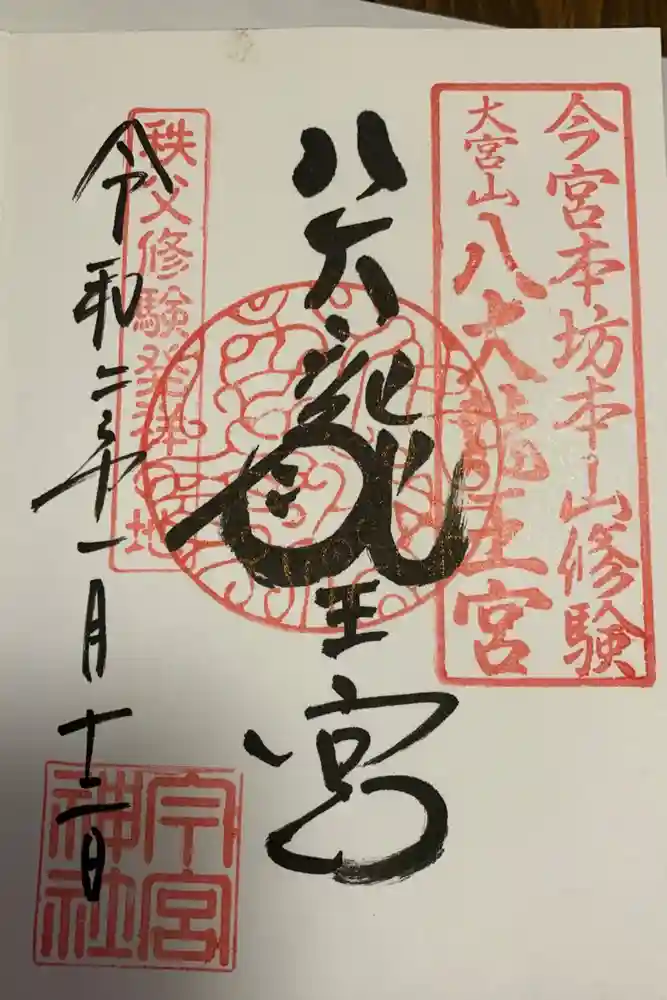 今宮本坊本山修験
大宮山
八大龍王宮
八大龍王宮
秩父修験発祥之地
令和二年一月十二日
今宮
神社